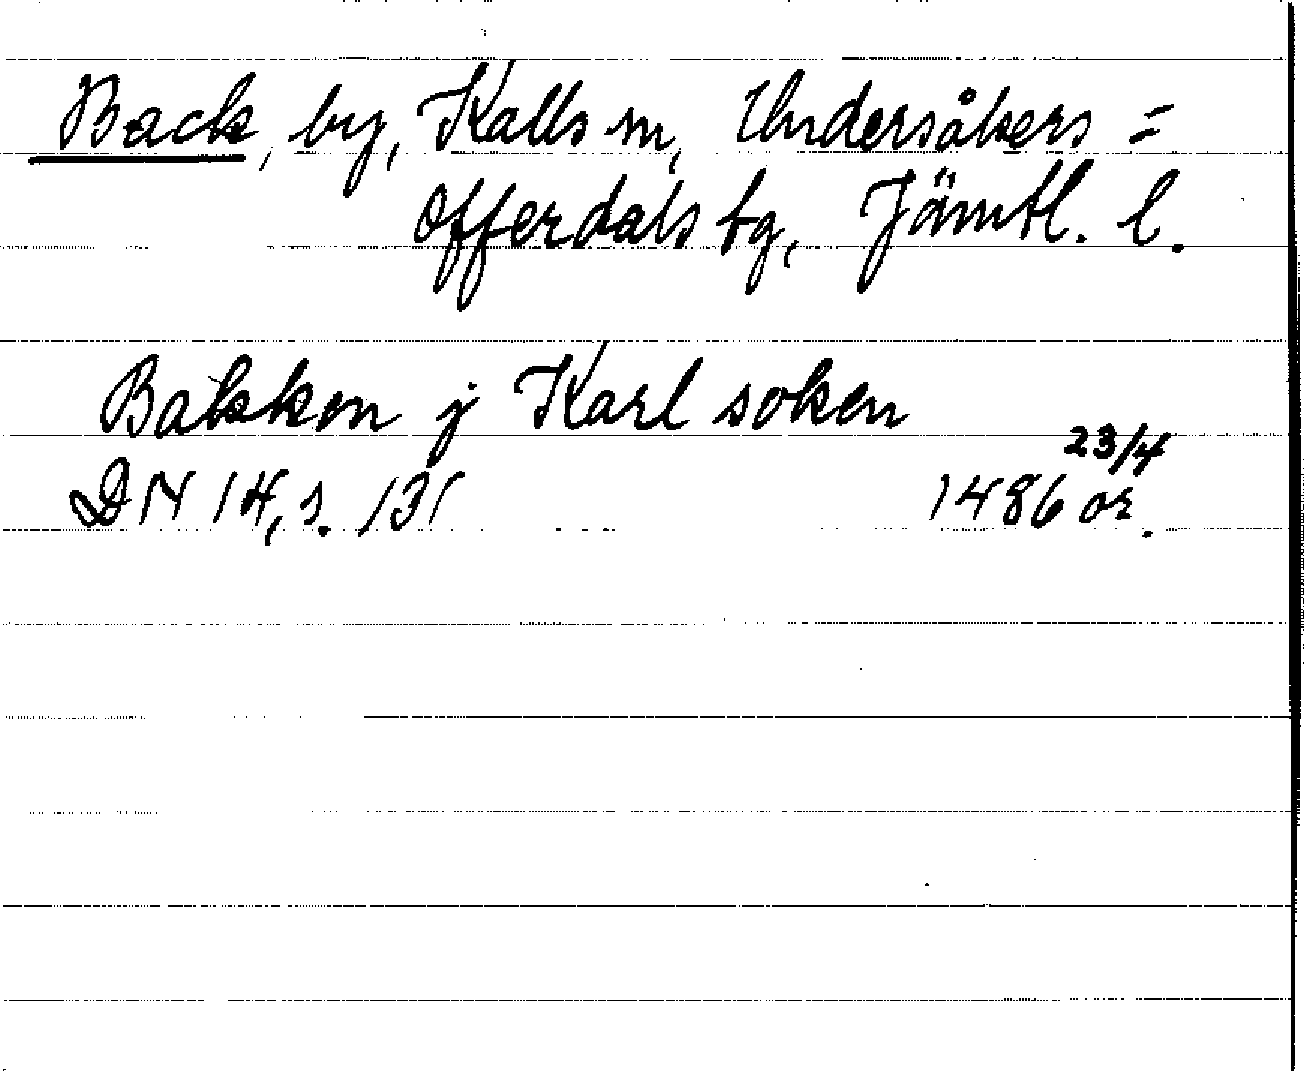 Back, by, Kalls sn, Undersåkers =
Offerdals tg, Jämtl. l.
Bakken j Karl soken
23/4
DN 14, s. 131 1486 or.